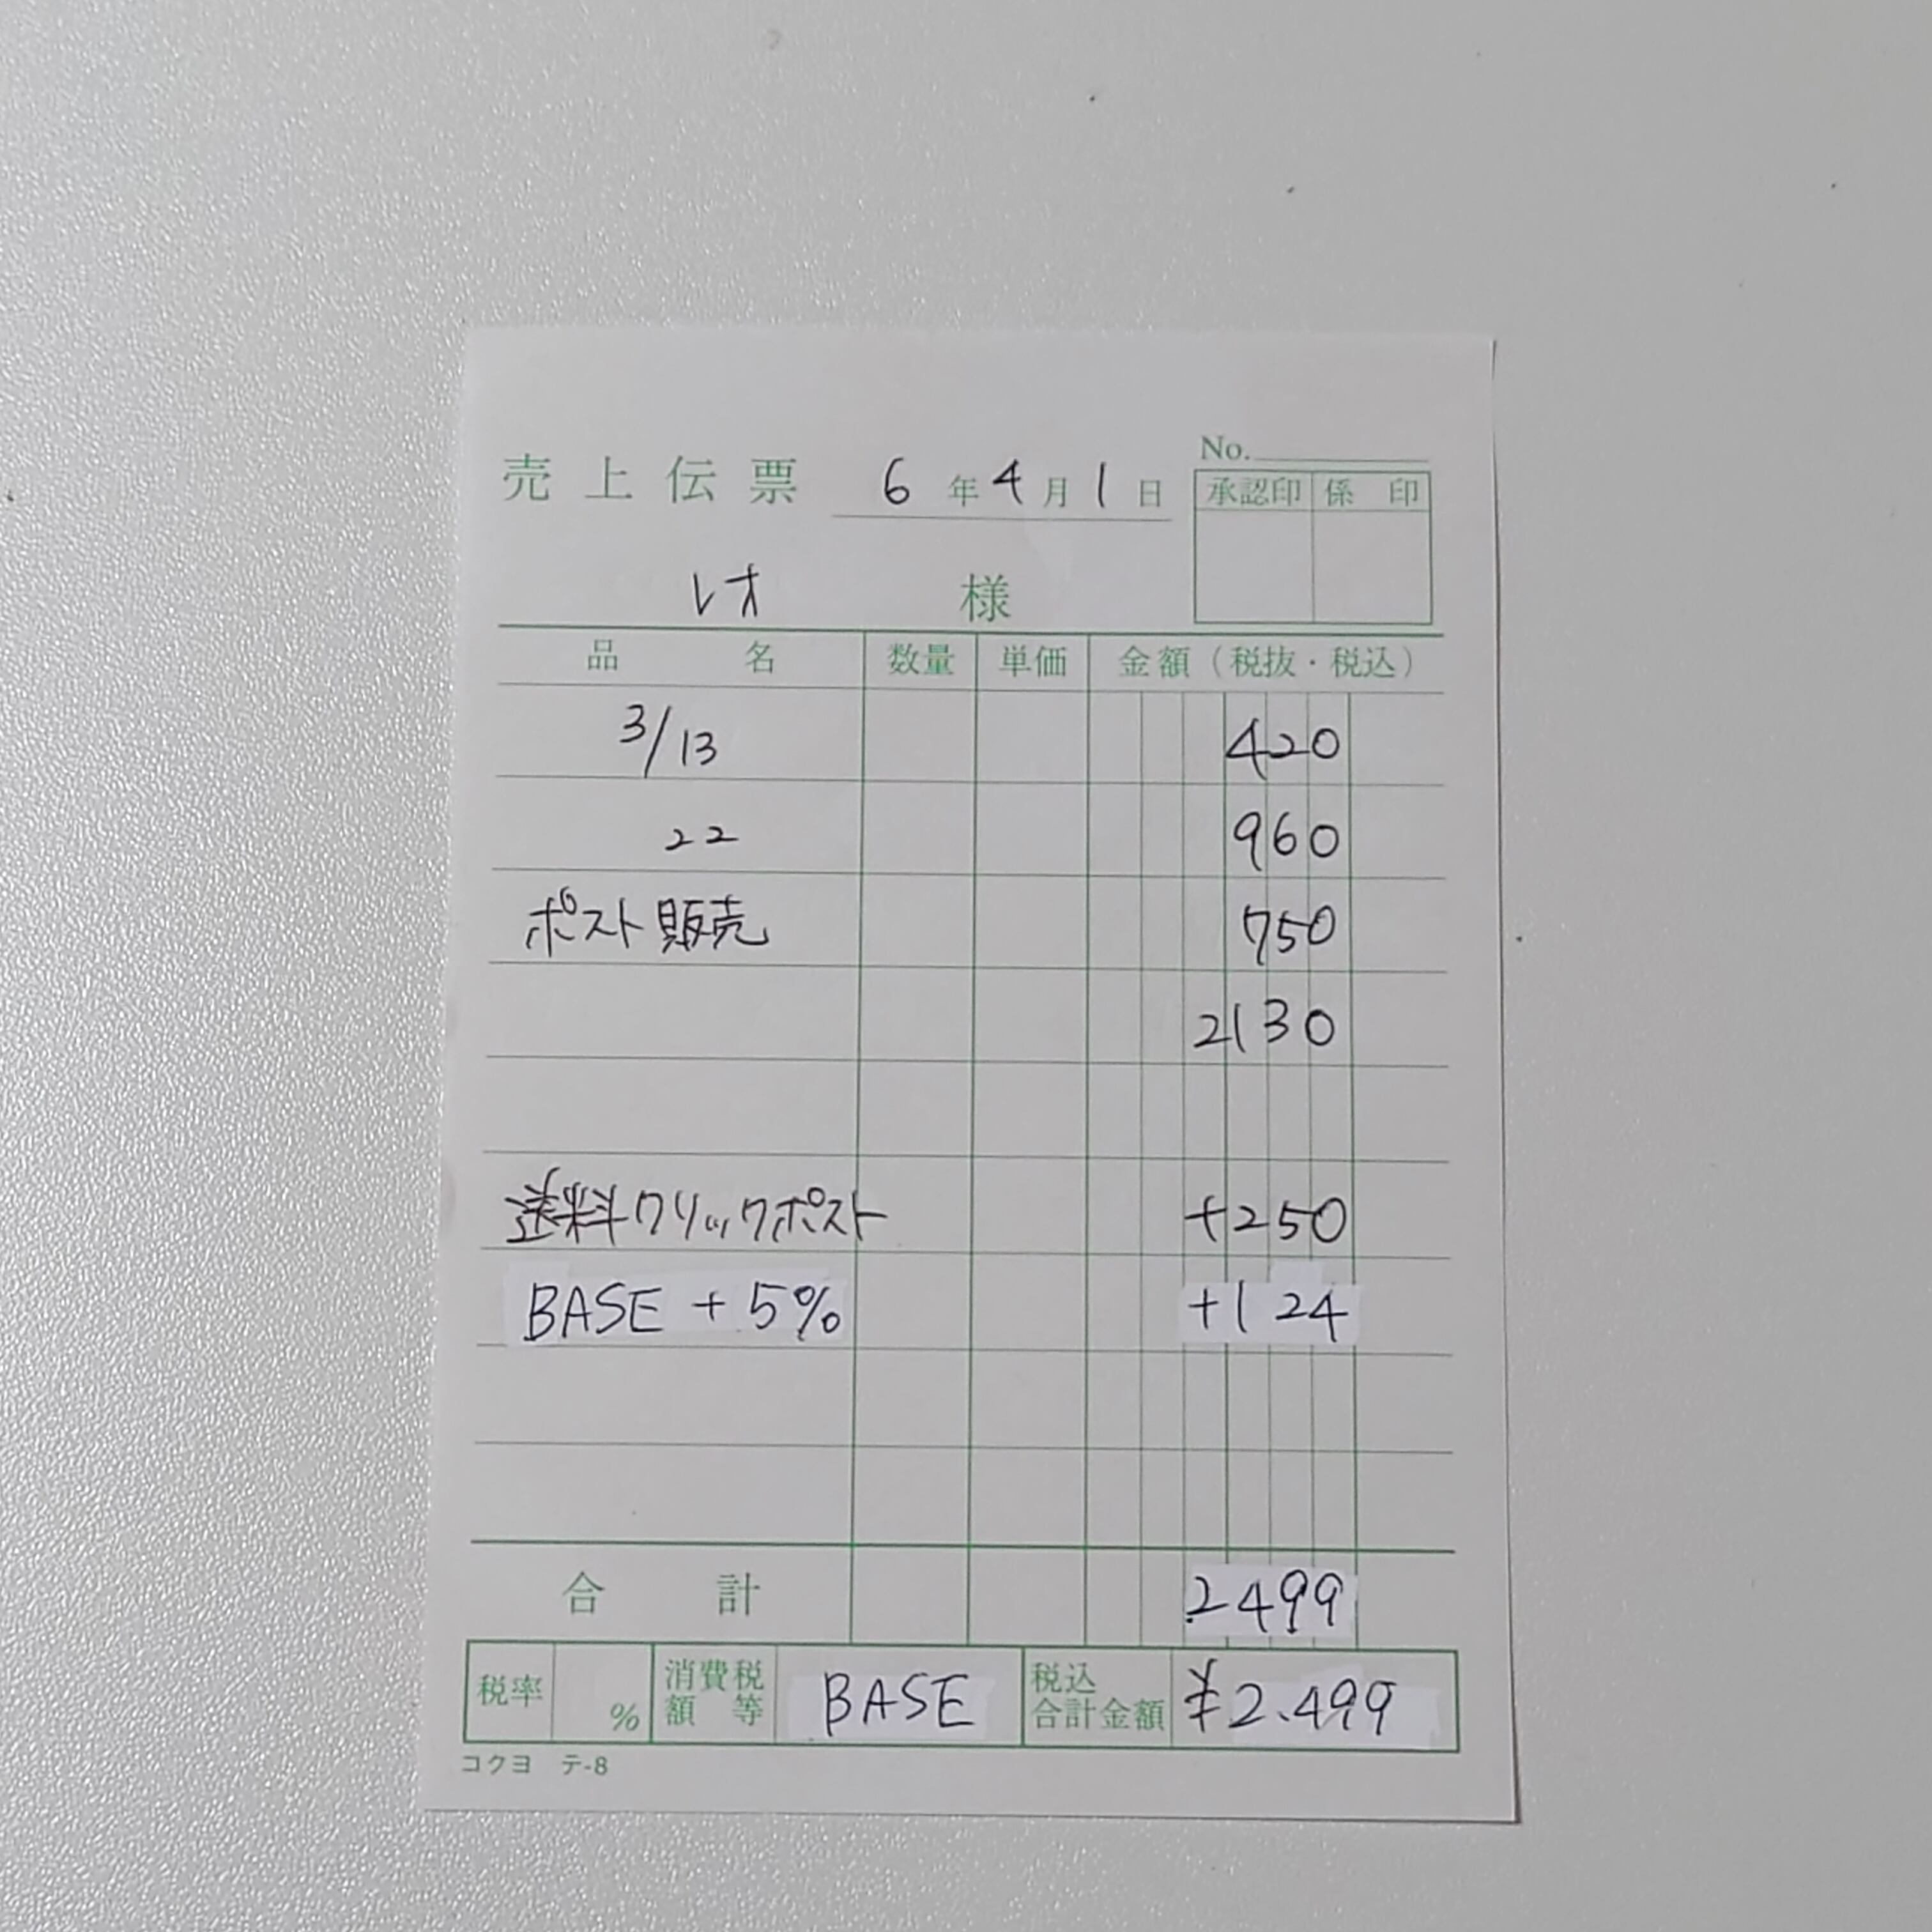 No.
売上伝票 6年4月1日
承認印 係印
レオ 様
品名 数量 単価 金額(税抜・税込)
3/13 420
22 960
ポスト販売 750
2130
送料クリックポスト +250
BASE + 5% +124
合計 2499
税率 % 消費税額等 BASE 税込合計金額 ¥2.499
コクヨ テ-8